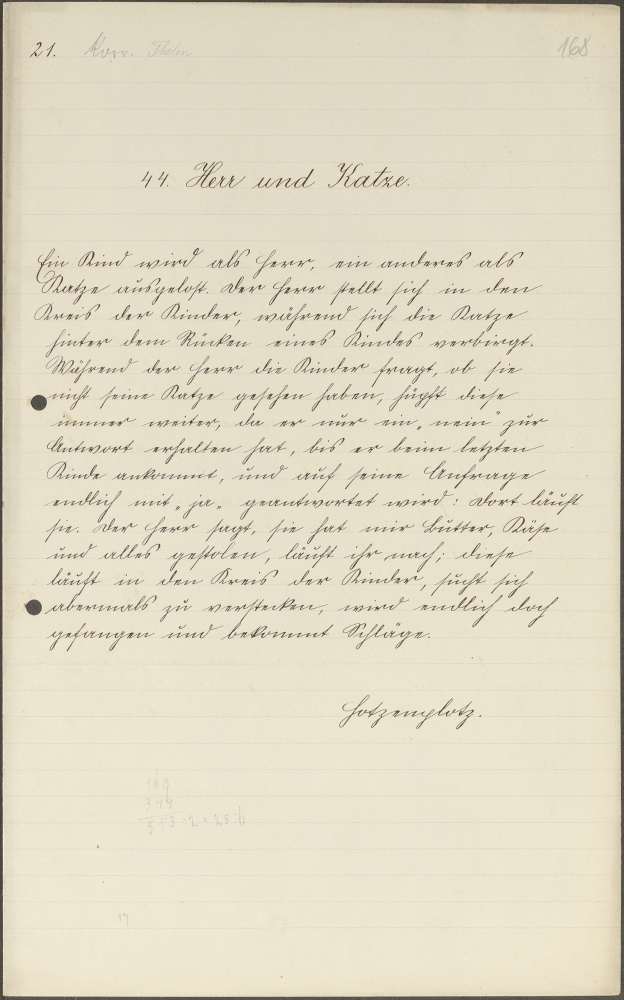 21. Korr. Thelen
168
44. Herr und Katze.
Ein Kind wird als Herr, ein anderes als
Katze ausgelost. Der Herr stellt sich in den
Kreis der Kinder, während sich die Katze
hinter dem Rücken eines Kindes verbirgt.
Während der Herr die Kinder fragt, ob sie
nicht seine Katze gesehen haben, hüpft diese
immer weiter, da er nur ein „nein" zur
Antwort erhalten hat, bis er beim letzten
Kinde ankommt, und auf seine Anfrage
endlich mit „ja„ geantwortet wird: Dort läuft
sie. Der Herr sagt, sie hat mir Butter, Käse
und alles gestolen, läuft ihr nach; diese
läuft in den Kreis der Kinder, sucht sich
abermals zu verstecken, wird endlich doch
gefangen und bekommt Schläge.
Hotzenplotz.